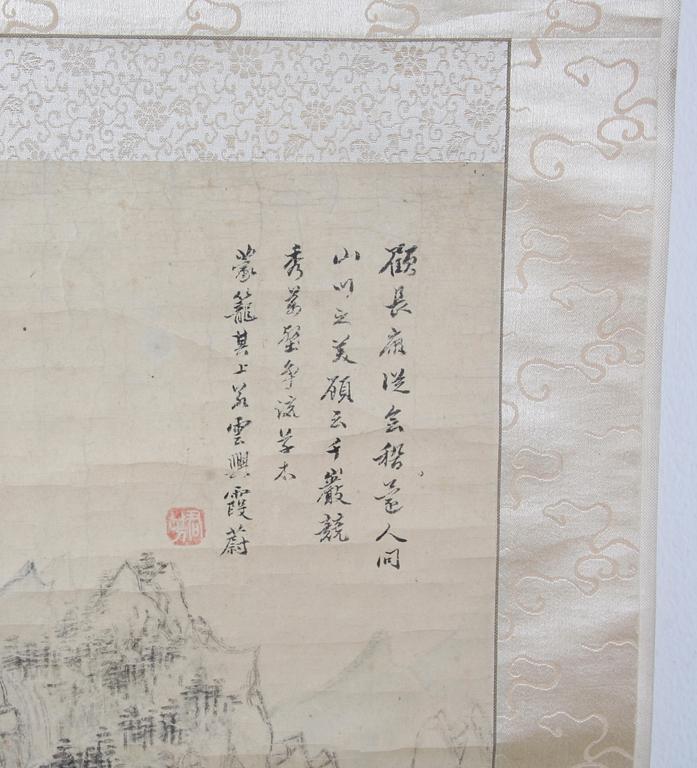 顧長康從會稽還人問
山川之美顧云千巖競
秀萬壑爭流草木
蒙籠其上若雲興霞蔚